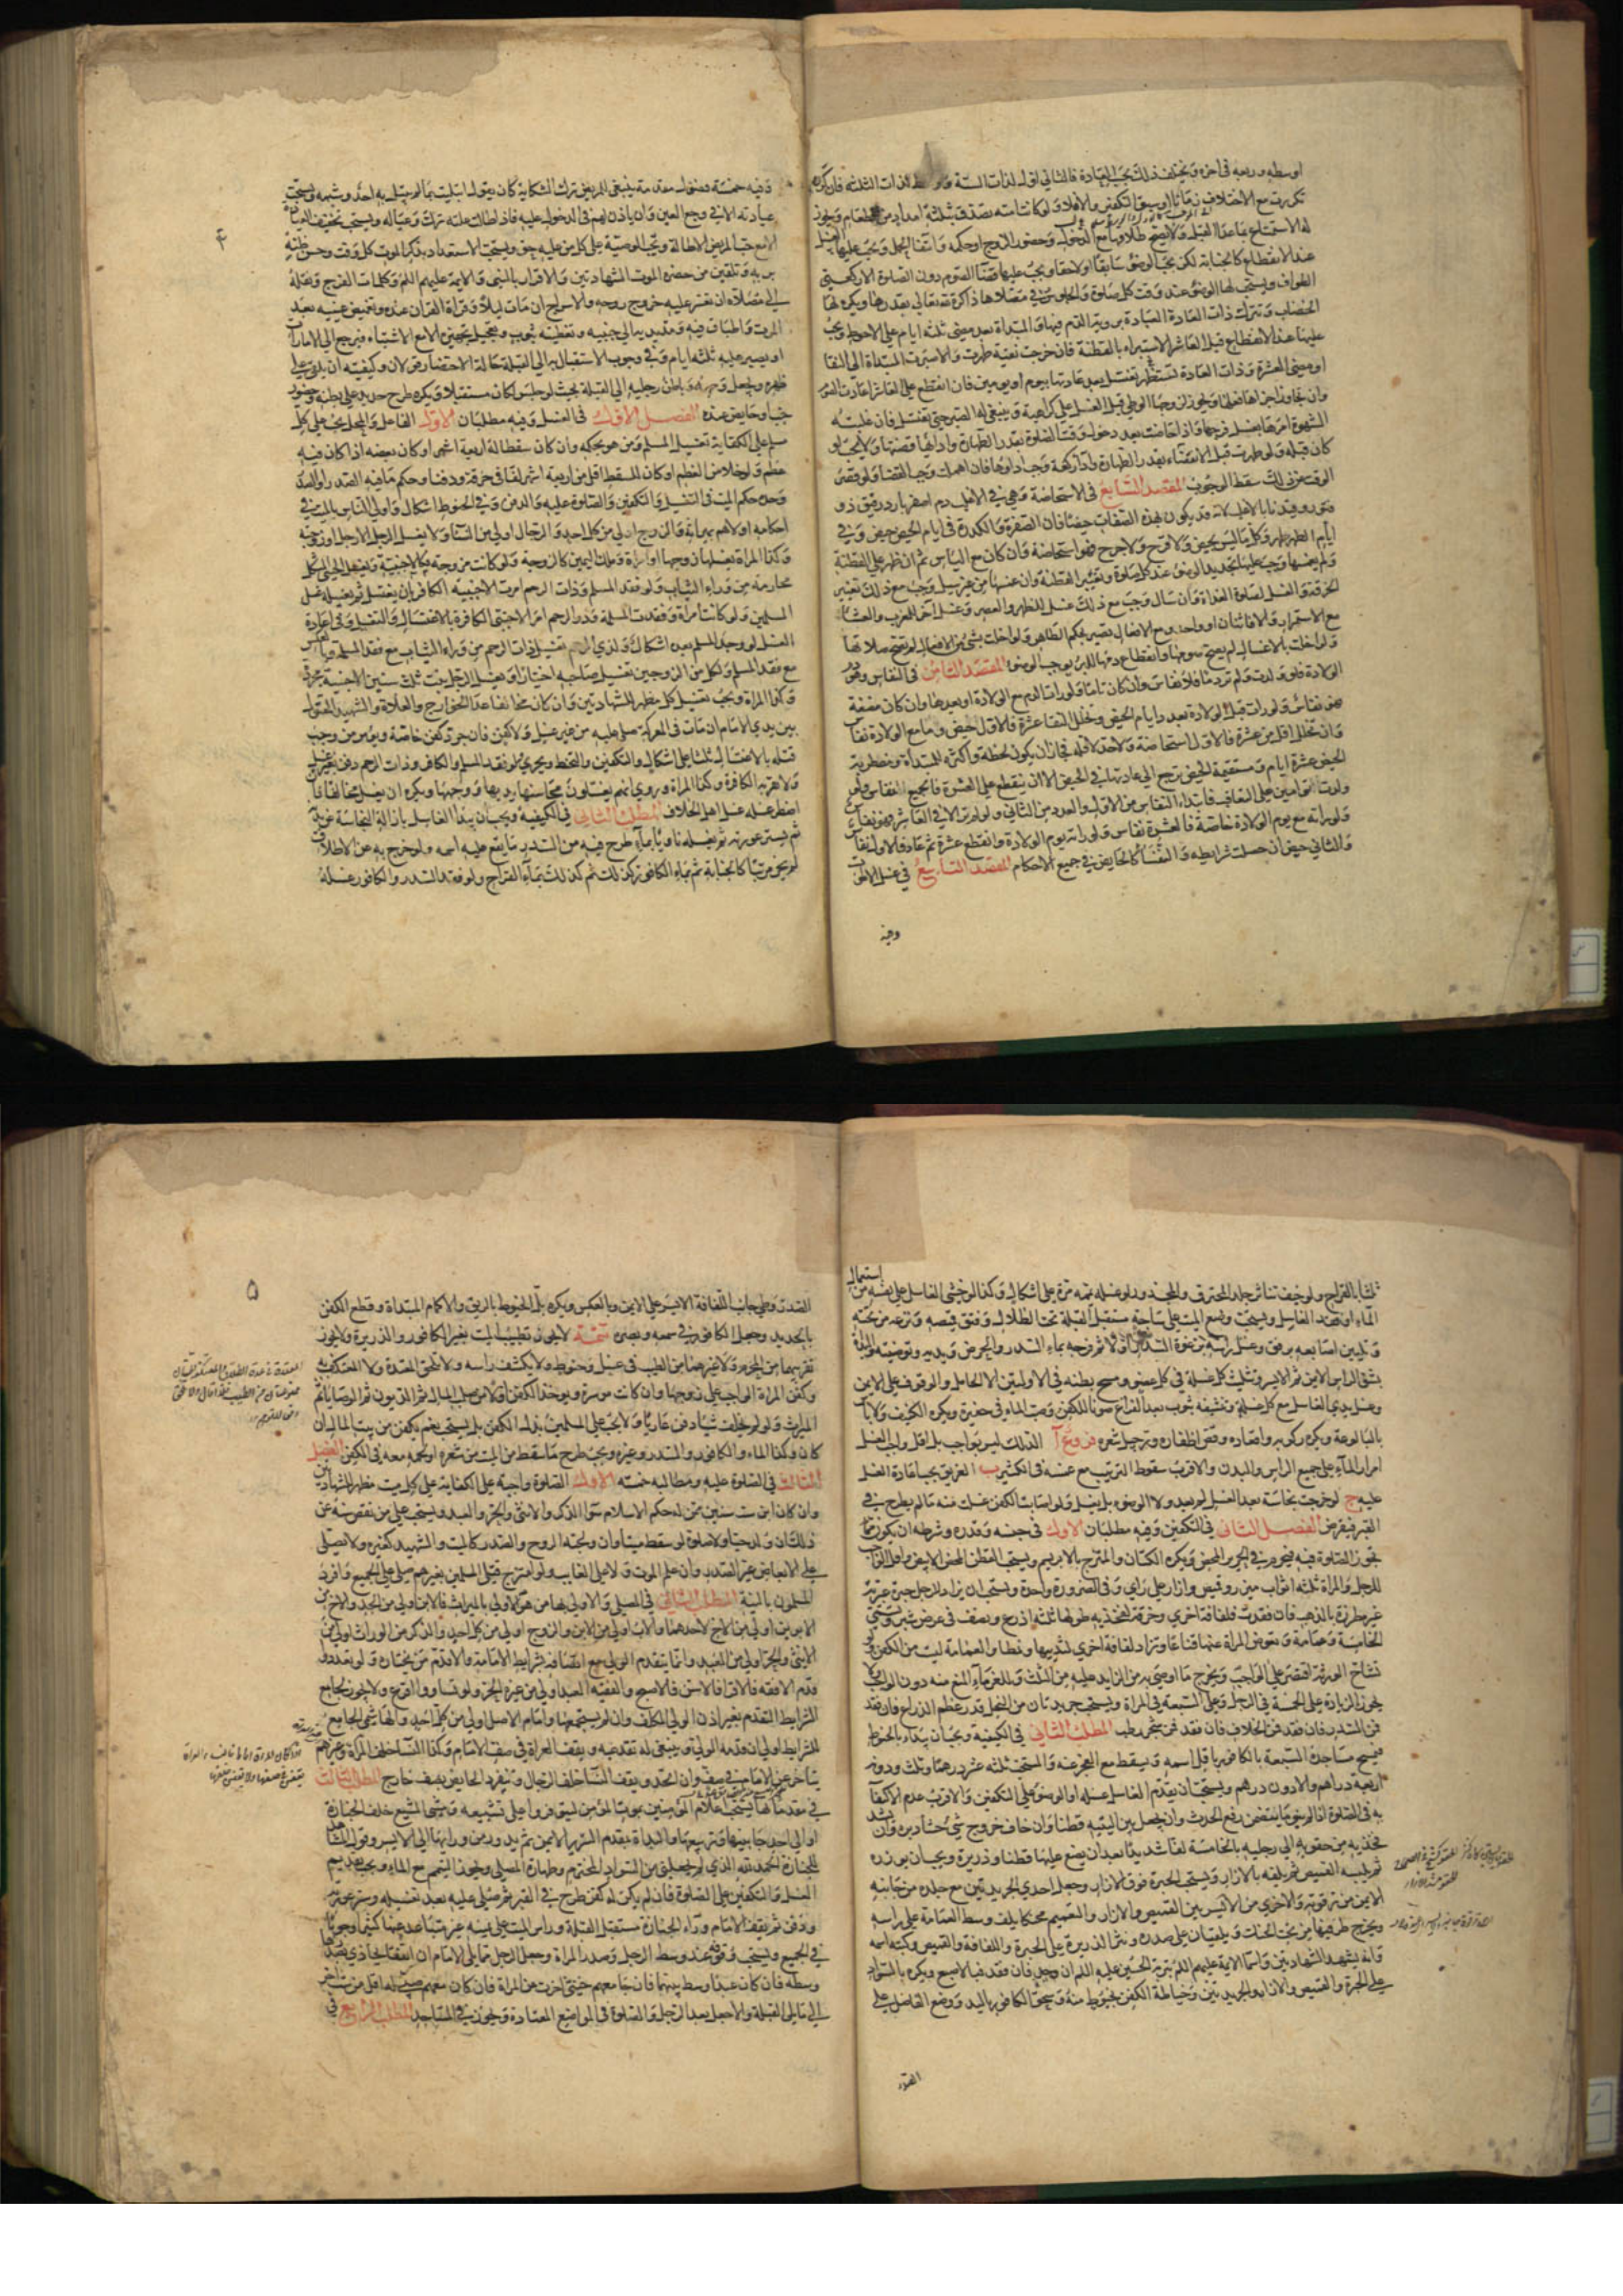 اوسطه وربعه في اخره ويختلف ذلك بحسب العادة فالثاني اول لذات الستة ووسط لذات الثلثة فان كرره
تكررت مع الاختلاف زمانا او سبق التكفير والا فلا ولو كانت امته تصدق بثلثة امداد من طعام ويجوز
له الاستمتاع بما عدا القبل ولا يصح طلاقها مع الدخول وحضور الزوج او حكمه وانتفا الحمل ويجب عليها الغسل
عند الانقطاع كالجنابة لكن يجب الوضوء سابقا او لاحقا ويجب عليها قضاء الصوم دون الصلوة الا ركعتي
الطواف ويستحب لها الوضوء عند وقت كل صلوة والجلوس في مصلاها ذاكرة لله تعالى بقدرها ويكره لها
الخضاب وتترك ذات العادة العبادة برؤية الدم فيها والمبتداة بعد مضي ثلثة ايام على الاحوط ويجب
عليها عند الانقطاع قبل العاشر الاستبراء بالقطنة فان خرجت نقية طهرت والا صبرت المبتداة الى النقا
او مضي العشرة وذات العادة تستظهر تغتسل بعد عادتها بيوم او يومين فان انقطع على العاشر اعادت الصوم
وان تجاوز اجزاها فعلها ويجوز لزوجها الوطي قبل الغسل على كراهية وينبغي له الصبر حتى تغتسل فان غلبته
الشهوة امرها بغسل فرجها واذا حاضت بعد دخول وقت الصلوة بقدر الطهارة وادائها قضتها ولا يجب لو
كان قبله ولو طهرت قبل الانقضاء بقدر الطهارة واداء ركعة وجب اداؤها فان اهملت وجب القضا ولو قصر
الوقت عن ذلك سقط الوجوب المقصد السابع في الاستحاضة وهي في الاغلب دم اصفر بارد رقيق ذو
فتور وقيدنا بالاغلب لانه قد يكون بهذه الصفات حيضا فان الصفرة والكدرة في ايام الحيض حيض وفي
ايام الطهر طهر وكل ما ليس بحيض ولا قرح ولا جرح فهو استحاضة وان كان مع الياس ثم ان ظهر على القطنة
ولم يغمسها وجب عليها تجديد الوضوء عند كل صلوة وتغيير القطنة وان غمسها من غير سيل وجب مع ذلك تغيير
الخرقة والغسل لصلوة الغداة وان سال وجب مع ذلك غسل للظهر والعصر وغسل آخر للمغرب والعشاء
مع الاستمرار والا فاثنان او واحد ومع الافعال تصير بحكم الطاهر ولو اخلت بشئ من الافعال لم تصح صلاتها
ولو اخلت بالاغسال لم يصح صومها وانقطاع دمها للبرء يوجب الوضوء المقصد الثامن في النفاس وهو دم
الولادة فلو ولدت ولم تر دما فلا نفاس وان كان تاما ولو رات الدم مع الولادة او بعدها وان كان مضغة
فهو نفاس ولو رات قبل الولادة بعدد ايام الحيض وتخلل النقا عشرة فالاول حيض وما مع الولادة نفاس
وان تخلل اقل من عشرة فالاول استحاضة ولا حد لاقله فجاز ان يكون لحظة واكثره للمبتداة ومضطربة
الحيض عشرة ايام ومستقيمة الحيض ترجع الى عادتها في الحيض الا ان ينقطع على العشرة فالجميع نفاس ولو
ولدت التوامين على التعاقب فابتداء النفاس من الاول والعدد من الثاني ولو لم تر الا في العاشر فهو نفاس
ولو راته مع يوم الولادة خاصة فالعشرة نفاس ولو راته يوم الولادة وانقطع عشرة ثم عاد فالاول نفاس
والثاني حيض ان حصلت شرائطه والنفساء كالحايض في جميع الاحكام المقصد التاسع في غسل الاموات
وفيه
٤
وفيه خمسة فصول مقدمة ينبغي للمريض ترك الشكاية كان يقول ابتليت بما لم يبتل به احد وشبهه ويستحب
عيادته الا في وجع العين وان ياذن لهم في الدخول عليه فاذا طالت علته ترك وعياله ويستحب تخفيف العيادة
الا مع حب المريض الاطالة وتجب الوصية على كل من عليه حق ويستحب الاستعداد بذكر الموت كل وقت وحسن ظنه
بربه وتلقين من حضره الموت الشهادتين والاقرار بالنبي والائمة عليهم السلم وكلمات الفرج ونقله
الى مصلاه ان تعسر عليه خروج روحه والاسراج ان مات ليلا وقراة القران عنده وتغميض عينيه بعد
الموت واطباق فيه ومد يديه الى جنبيه وتغطيته بثوب وتعجيل تجهيزه الا مع الاشتباه فيرجع الى الامارات
او يصبر عليه ثلثة ايام وفي وجوب الاستقبال به الى القبلة حالة الاحتضار قولان وكيفيته ان يلقى على
ظهره ويجعل وجهه وباطن رجليه الى القبلة بحيث لو جلس لكان مستقبلا ويكره طرح حديد على بطنه وحضور
جنب وحايض عنده الفصل الاول في الغسل وفيه مطلبان الاول الفاعل والمحل يجب على كل
مسلم على الكفاية تغسيل المسلم ومن هو بحكمه وان كان سقطا له اربعة اشهر او كان بعضه اذا كان فيه
عظم ولو خلا من العظم او كان للسقط اقل من اربعة اشهر لفا في خرقة ودفنا وحكم ما فيه الصدر او الصدر
وحده حكم الميت في التغسيل والتكفين والصلوة عليه والدفن وفي الحنوط اشكال واولى الناس بالميت في
احكامه اولاهم بميراثه والزوج اولى من كل احد والرجال اولى من النساء ولا يغسل الرجل الا رجل او زوجته
وكذا المراة يغسلها زوجها او امراة وملك اليمين كالزوجة ولو كانت مزوجة فكالاجنبية وتغسل الخنثى المشكل
محارمه من وراء الثياب ولو فقد المسلم وذات الرحم امرت الاجنبية الكافر بان يغتسل ثم يغسله غسل
المسلمين ولو كانت امراة وفقدت المسلمة وذو الرحم امر الاجنبي الكافرة بالاغتسال والتغسيل وفي اعادة
الغسل لو وجد المسلم بعده اشكال ولذي الرحم تغسيل ذات الرحم من وراء الثياب مع فقد المسلمة وبالعكس
مع فقد المسلم ولكل من الزوجين تغسيل صاحبه اختيارا ويغسل الرجل بنت ثلث سنين الاجنبية مجردة
وكذا المراة ويجب تغسيل كل مظهر للشهادتين وان كان مخالفا عدا الخوارج والغلاة والشهيد المقتول
بين يدي الامام ان مات في المعركة صلي عليه من غير غسل ولا كفن فان جرد كفن خاصة ويؤمر من وجب
قتله بالاغتسال ثلثا على اشكال والتكفين والتحنط ويجزي ولو فقد المسلم والكافر وذات الرحم دفن بغير غسل
ولا تقربه الكافرة وكذا المراة وروي انهم يغسلون محاسنها يديها ووجهها ويكره ان يغسل مخالفا فان
اضطر غسله غسل اهل الخلاف المطلب الثاني في الكيفية ويجب ان يبدا الغاسل بازالة النجاسة عن بدنه
ثم يستر عورته ثم يغسله ناويا بماء طرح فيه من السدر ما يقع عليه اسمه ولو خرج به عن الاطلاق
لم يجز مرتبا كالجنابة ثم بماء الكافور كذلك ثم كذلك بماء القراح ولو فقد السدر والكافور غسله
ثلثا بالقراح ولو خيف تناثر جلد المحترق والمجدور لو غسله يممه مرة على اشكال وكذا لو خشي الغاسل على نفسه من استعمال
الماء او فقد الغاسل ويستحب وضع الميت على ساجة مستقبل القبلة تحت الظلال وفتق قميصه ونزعه من تحته
وتليين اصابعه برفق وغسل راسه برغوة السدر اولا ثم فرجه بماء السدر والحرض ويديه وتوضيته والبداة
بشق الراس الايمن ثم الايسر وتثليث كل غسلة في كل عضو ومسح بطنه في الاولتين الا الحامل والوقوف على الايمن
وغسل يدي الغاسل مع كل غسلة وتنشيفه بثوب بعد الفراغ صونا للكفن وصب الماء في حفيرة ويكره الكنيف ولا باس
بالبالوعة ويكره ركوبه واقعاده وقص اظفاره وترجيل شعره فروع آ الدلك ليس بواجب بل اقل واجب الغسل
امرار الماء على جميع الراس والبدن والاقرب سقوط الترتيب مع غمسه في الكثير ب الغريق يجب اعادة الغسل
عليه ج لو خرجت نجاسة بعد الغسل لم يعد ولا الوضوء بل يغسل ولو اصابت الكفن غسلت منه ما لم يطرح في
القبر فيقرض الفصل الثاني في التكفين وفيه مطلبان الاول في جنسه وقدره وشرطه ان يكون مما
تجوز الصلوة فيه فيحرم في الحرير المحض ويكره الكتان والممتزج بالابريسم ويستحب القطن المحض الابيض واقل الواجب
للرجل والمراة ثلثة اثواب مئزر وقميص وازار على راي وفي الضرورة واحدة ويستحب ان يزاد للرجل حبرة عبرية
غير مطرزة بالذهب فان فقدت فلفافة اخرى وخرقة لفخذيه طولها ثلثة اذرع ونصف في عرض شبر وتسمى
الخامسة وعمامة وتعوض المراة عنها قناعا وتزاد لفافة اخرى لثدييها ونمطا والعمامة ليست من الكفن ولو
تشاح الورثة اقتصر على الواجب ويخرج ما اوصى به من الزايد عليه من الثلث وللغرماء المنع منه دون الواجب ولا
يجوز الزيادة على الخمسة في الرجل وعلى السبعة في المراة ويستحب جريدتان من النخل قدر عظم الذراع فان فقد
فمن السدر فان فقد فمن الخلاف فان فقد فمن شجر رطب المطلب الثاني في الكيفية ويجب ان يبداء بالحنوط
فيمسح مساجده السبعة بالكافور باقل اسمه ويسقط مع العجز عنه والمستحب ثلثة عشر درهما وثلث ودونه
اربعة دراهم والادون درهم ويستحب ان يقدم الغاسل غسله او الوضوء على التكفين والاقرب عدم الاكتفاء
به في الصلوة اذا لم ينو ما يتضمن رفع الحدث وان يجعل بين اليتيه قطنا وان خاف خروج شئ حشا دبره وان يشد
فخذيه من حقويه الى رجليه بالخامسة لفا شديدا بعد ان يضع عليها قطنا وذريرة ويجب ان يوزره
ثم يلبسه القميص ثم يلفه بالازار ويستحب الحبرة فوق الازار وجعل احدى الجريدتين مع جلده من جانبه
الايمن من ترقوته والاخرى من الايسر بين القميص والازار والتعميم محنكا يلف وسط العمامة على راسه
ويخرج طرفيها من تحت الحنك ويلقيان على صدره ونثر الذريرة على الحبرة واللفافة والقميص وكتبة اسمه
وانه يشهد الشهادتين واسما الائمة عليهم السلم بتربة الحسين عليه السلم ان وجد فان فقد فبالاصبع ويكره بالسواد
على الحبرة والقميص والازار والجريدتين وخياطة الكفن بخيوط منه وسحق الكافور باليد ووضع الفاضل على
الصدر
٥
الصدر وطي جانب اللفافة الايسر على الايمن وبالعكس ويكره بل الخيوط بالريق والاكمام المبتداة وقطع الكفن
بالحديد وجعل الكافور في سمعه وبصره تتمة لا يجوز تطييب الميت بغير الكافور والذريرة ولا يجوز
تقريبهما من المحرم ولا غيرهما من الطيب في غسل وحنوط ولا يكشف راسه ولا تلحق المعتدة ولا المعتكف به
وكفن المراة الواجب على زوجها وان كانت موسرة ويوخذ الكفن اولا من صلب المال ثم الديون ثم الوصايا ثم
الميراث ولو لم يخلف شيئا دفن عاريا ولا يجب على المسلمين بذل الكفن بل يستحب نعم يكفن من بيت المال ان
كان وكذا الماء والكافور والسدر وغيره ويجب طرح ما سقط من الميت من شعره او لحمه معه في الكفن الفصل
الثالث في الصلوة عليه ومطالبه خمسة الاول الصلوة واجبة على الكفاية على كل ميت مظهر للشهادتين
وان كان ابن ست سنين ممن له حكم الاسلام سواء الذكر والانثى والحر والعبد ويستحب على من نقص سنه عن
ذلك ان ولد حيا ولا صلوة لو سقط ميتا وان ولجته الروح والصدر كالميت والشهيد كغيره ولا يصلى
على الابعاض غير الصدر وان علم الموت ولا على الغايب ولو امتزج قتلى المسلمين بغيرهم صلي على الجميع وافرد
المسلمون بالنية المطلب الثاني في المصلي والاولى بها من هو اولى بالميراث فالابن اولى من الجد والاخ من
الابوين اولى من الاخ لاحدهما والاب اولى من الابن والزوج اولى من كل احد والذكر من الوراث اولى من
الانثى والحر اولى من العبد وانما يتقدم الولي مع اتصافه بشرايط الامامة والا قدم من يختار ولو تعددوا
قدم الافقه فالاقرا فالاسن فالاصبح والفقيه العبد اولى من غيره الحر ولو تساووا اقرع ولا يجوز لجامع
الشرايط التقدم بغير اذن الولي المكلف وان لم يستجمعها وامام الاصل اولى من كل احد والهاشمي الجامع
للشرايط اولى ان قدمه الولي وينبغي له تقديمه ويقف العراة في صف الامام وكذا النساء خلف المراة وغيرهم
يتاخر عن الامام في صف وان اتحد ويقف النساء خلف الرجال وتنفرد الحايض بصف خارج المطلب الثالث
في مقدماتها يستحب اعلام المؤمنين بموت المؤمن ليتوفروا على تشييعه ومشي المشيع خلف الجنازة
او الى احد جانبيها وتربيعها والبداة بمقدم السرير الايمن ثم يدور من ورائها الى الايسر وقول المشاهد
للجنازة الحمد لله الذي لم يجعلني من السواد المخترم وطهارة المصلي ويجوز التيمم مع الماء ويجب تقديم
الغسل والتكفين على الصلوة فان لم يكن له كفن طرح في القبر ثم صلي عليه بعد تغسيله وستر عورته
ودفن ثم يقف الامام وراء الجنازة مستقبل القبلة وراس الميت على يمينه غير متباعد عنها كثيرا وجوبا
في الجميع ويستحب وقوفه عند وسط الرجل وصدر المراة وجعل الرجل مما يلي الامام ان اتفقا يحاذي بصدرها
وسطه فان كان عبدا وسط بينهما فان جامعهم خنثى اخرت عن المراة فان كان معهم صبي له اقل من ست اخر
الى ما يلي القبلة والا جعل بعد الرجل والصلوة في المواضع المعتادة وتجوز في المساجد المطلب الرابع في